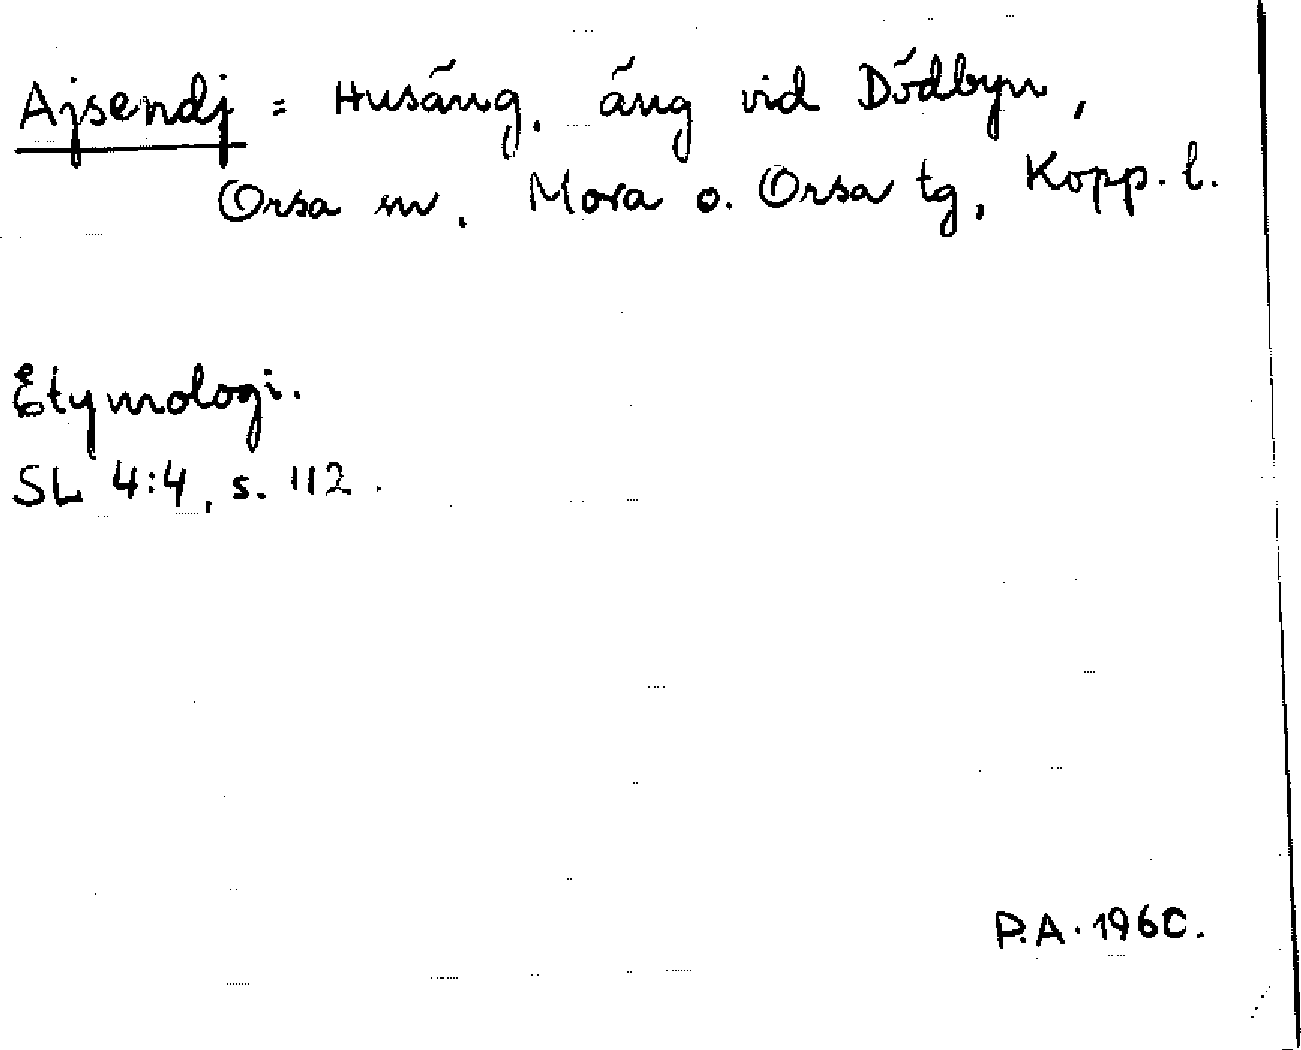 Ajsendj = Husäng, äng vid Dödbyn,
Orsa sn, Mora o. Orsa tg, Kopp. l.
Etymologi.
SL 4:4, s. 112.
P.A. 1960.